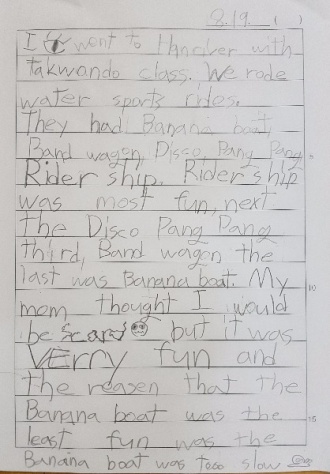 8.19. ( )
I went to Hanriver with
takwondo class. We rode
water sports rides.
They had Banana boat,
Band wagen, Disco, Pang Pang
5
Rider ship. Rider ship
was most fun, next
the Disco Pang Pang
third, Band wagen the
last was Banana boat. My
10
mom thought I would
be scard but it was
VErry fun and
the reasen that the
Banana boat was the
15
least fun was the
Banana boat was tooo slow